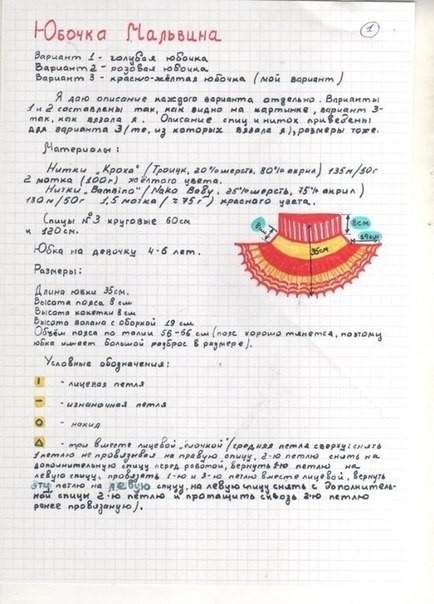 1
Юбочка Мальвина
Вариант 1 - голубая юбочка
Вариант 2 - розовая юбочка
Вариант 3 - красно-жёлтая юбочка (мой вариант)
Я даю описание каждого варианта отдельно. Варианты
1 и 2 составлены так, как видно на картинке, вариант 3-
так, как вязала я. Описание спиц и ниток приведены
для варианта 3 (те, из которых вязала я), размеры тоже.
Материалы:
Нитки „Кроха" (Троицк, 20% шерсть, 80% акрил) 135м/50г
2 мотка (100г) жёлтого цвета.
Нитки „Bambino" (Nako Baby, 25% шерсть, 75% акрил)
130м/50г 1,5 мотка (≈75г) красного цвета.
Спицы №3 круговые 60см
и 120см.
8см
8см
35см
19см
Юбка на девочку 4-6 лет.
Размеры:
Длина юбки 35см.
Высота пояса 8см
Высота кокетки 8см
Высота волана с оборкой 19см
Объём пояса по талии 56-66см (пояс хорошо тянется, поэтому
юбка имеет большой разброс в размере).
Условные обозначения:
I - лицевая петля
- - изнаночная петля
O - накид
△ - три вместе лицевой „ёлочкой" (средняя петля сверху: снять
1 петлю не провязывая на правую спицу, 2-ю петлю снять на
дополнительную спицу перед работой, вернуть 1-ю петлю на
левую спицу, провязать 1-ю и 3-ю петлю вместе лицевой, вернуть
эту петлю на левую спицу, на левую спицу снять с дополнитель-
ной спицы 2-ю петлю и протащить сквозь 2-ю петлю
ранее провязанную).